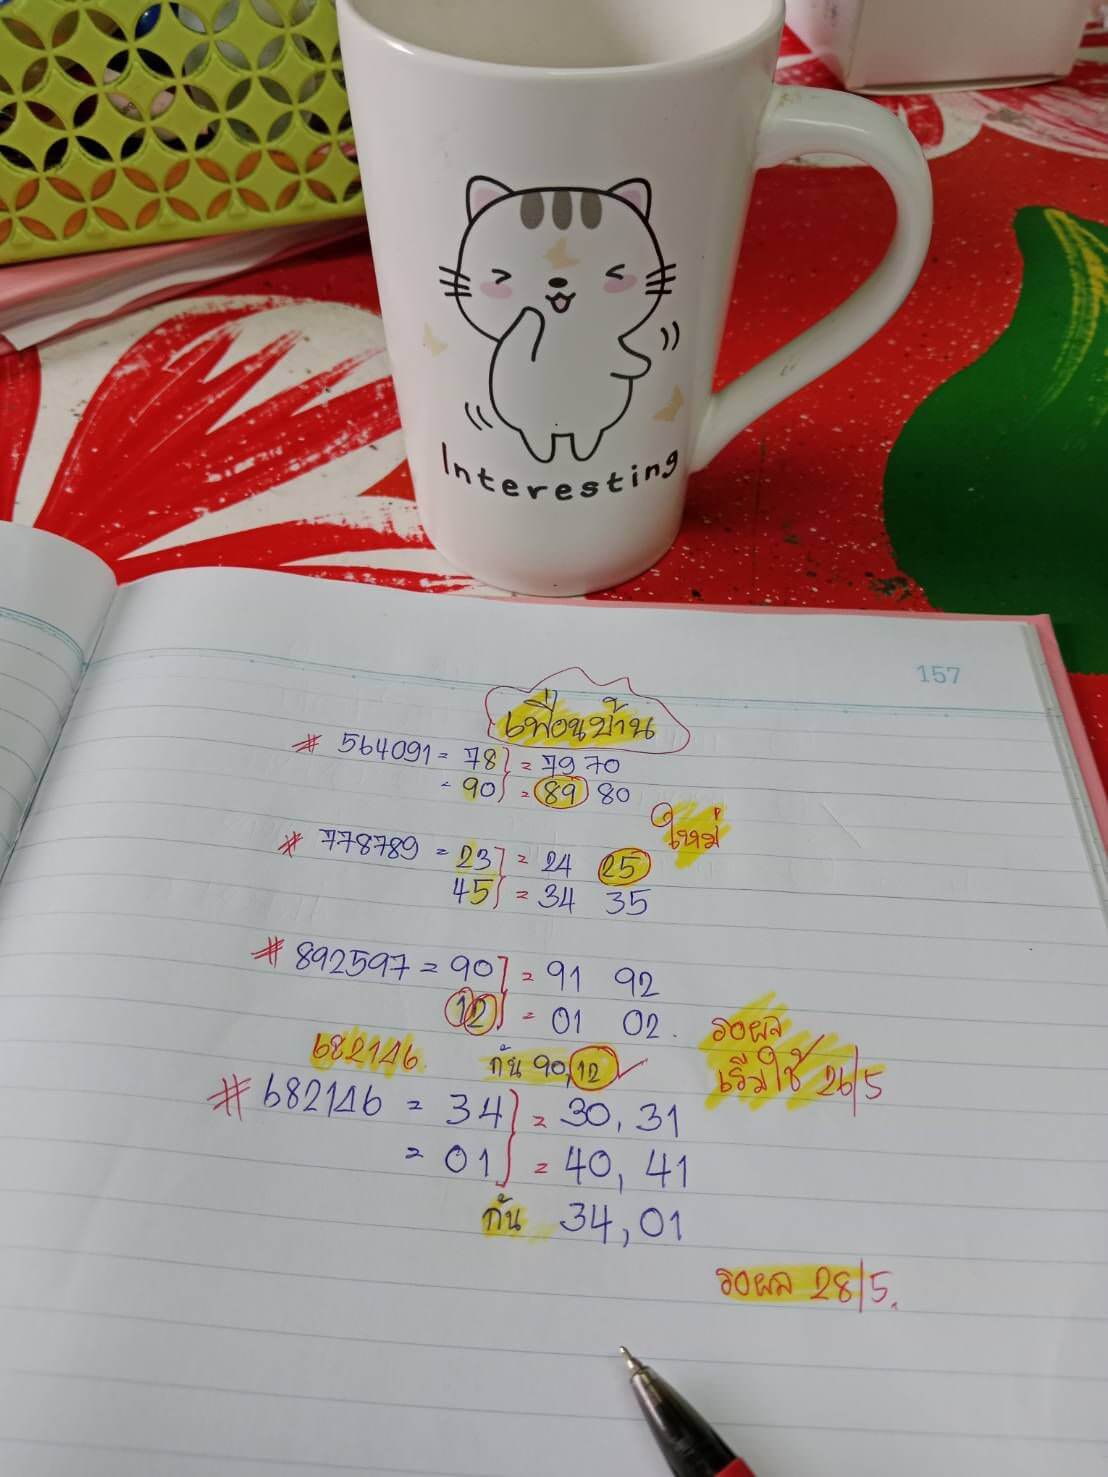 Interesting
157
เพื่อนบ้าน
# 564091 = 78 } = 79 70
= 90 } = 89 80
ใหม่
# 778789 = 23 } = 24 25
45 } = 34 35
# 892597 = 90 } = 91 92
12 } = 01 02.
682146. กัน 90, 12 ✓
รอผล
เริ่มใช้ 26/5
# 682146 = 34 } = 30, 31
= 01 } = 40, 41
กัน 34, 01
รอผล 28/5.